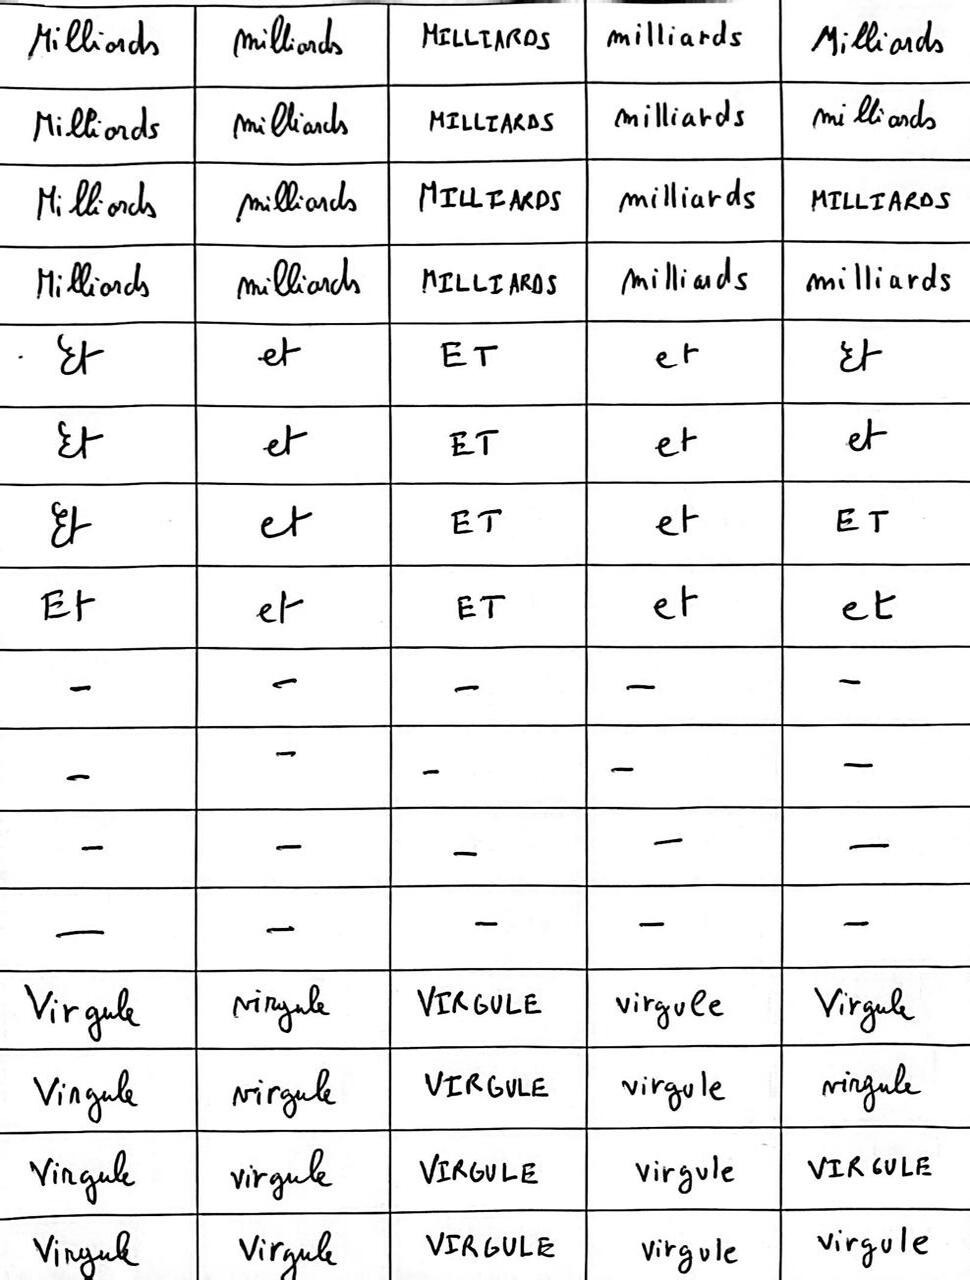 Milliards milliards MILLIARDS milliards Milliards
Milliards milliards MILLIARDS milliards milliards
Milliards milliards MILLIARDS milliards MILLIARDS
Milliards milliards MILLIARDS milliards milliards
Et et ET et Et
Et et ET et et
Et et ET et ET
Et et ET et et
- - - - -
- - - - -
- - - - -
- - - - -
Virgule virgule VIRGULE virgule Virgule
Virgule virgule VIRGULE virgule virgule
Virgule virgule VIRGULE virgule VIRGULE
Virgule Virgule VIRGULE virgule virgule